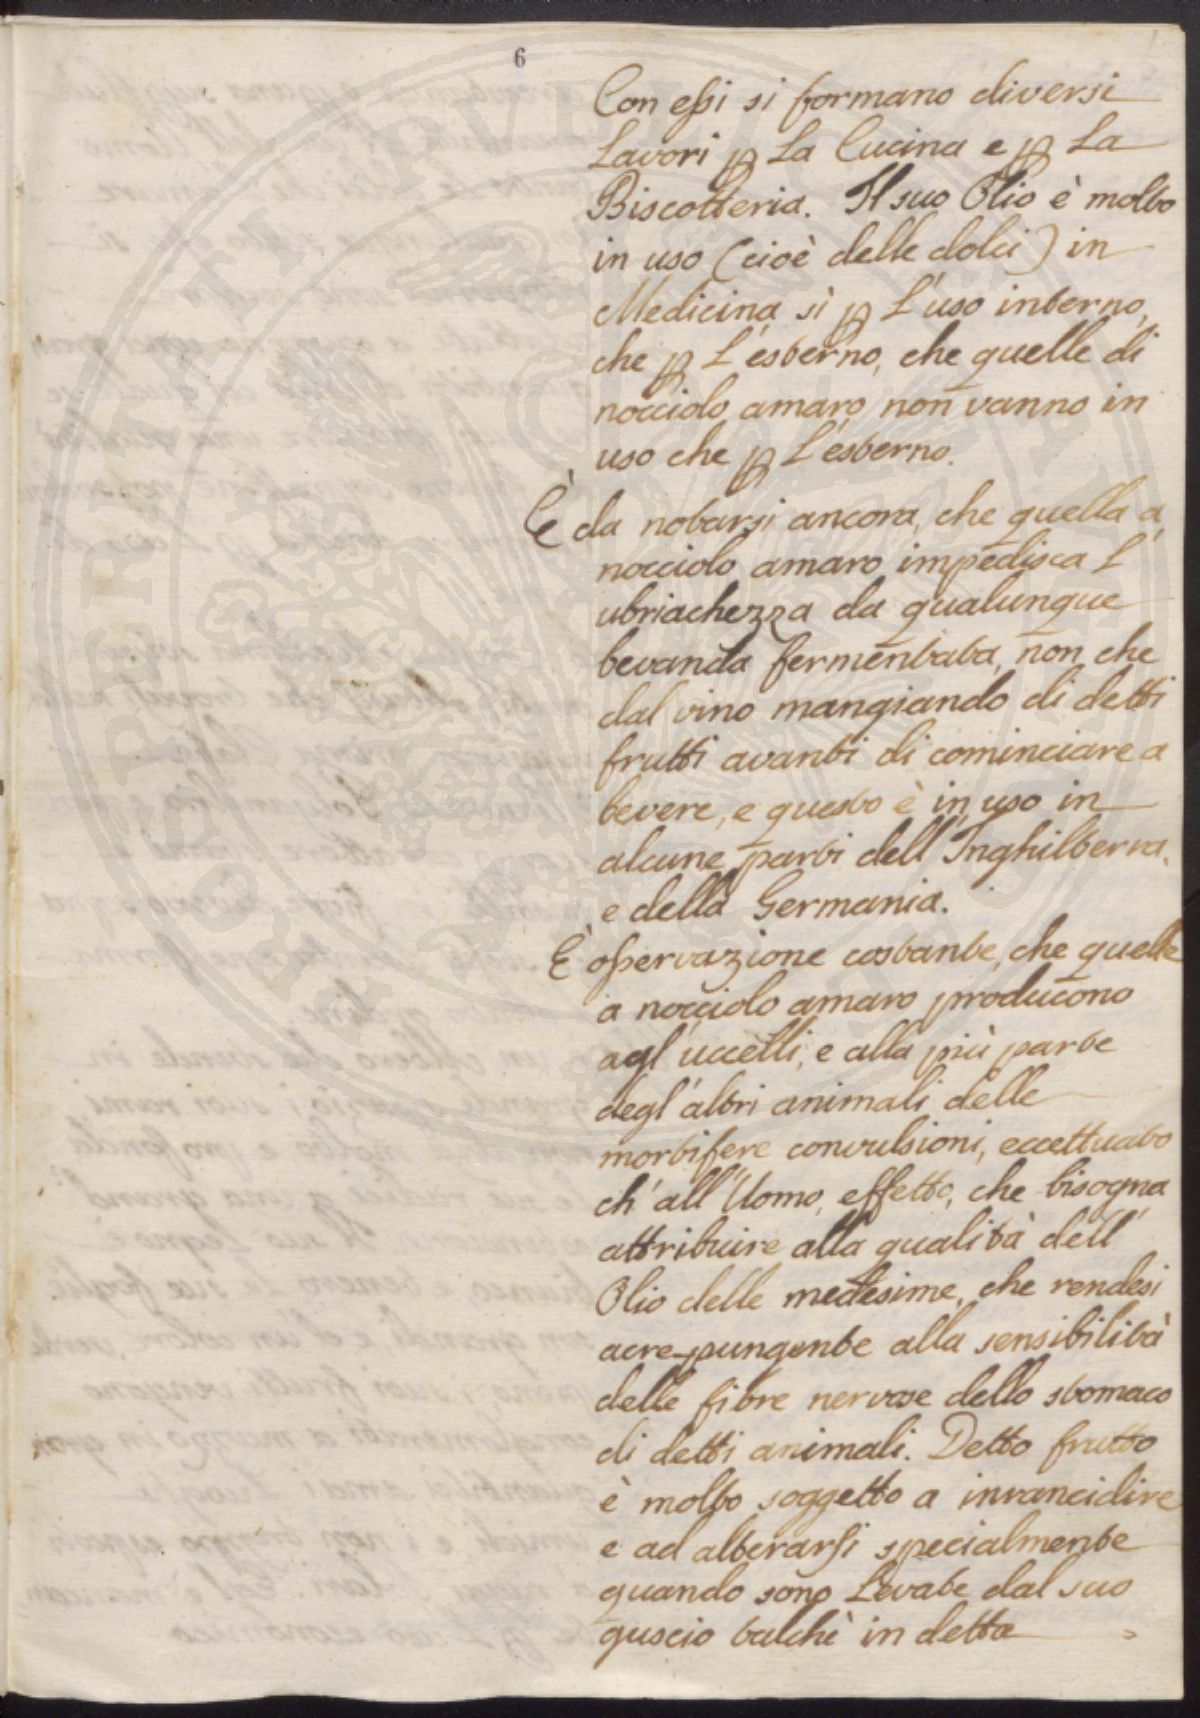 6
Con eßi si formano diversi
Lavori ꝑ La Cucina e ꝑ La
Biscotteria. Il suo Olio è molto
in uso (cioè delle dolci) in
Medicina sì ꝑ L'uso interno,
che ꝑ L'esterno, che quelle di
nocciolo amaro non vanno in
uso che ꝑ L'esterno.
È da notarsi ancora, che quella a
nocciolo amaro impedisca L'
ubriachezza da qualunque
bevanda fermentata, non che
dal vino mangiando di detti
frutti avanti di cominciare a
bevere, e questo è in uso in
alcune parti dell'Inghilterra,
e della Germania.
È oßervazione costante, che quelle
a nocciolo amaro producono
agl'uccelli, e alla più parte
degl'altri animali delle
mortifere convulsioni, eccettuato
ch'all'Uomo, effetto, che bisogna
attribuire alla qualità dell'
Olio delle medesime, che rendesi
acre-pungente alla sensibilità
delle fibre nervose dello stomaco
di detti animali. Detto frutto
è molto soggetto a invancidire
e ad alterarsi specialmente
quando sono Levate dal suo
guscio talchè in detta
PROSPERITATI PVBLICAE